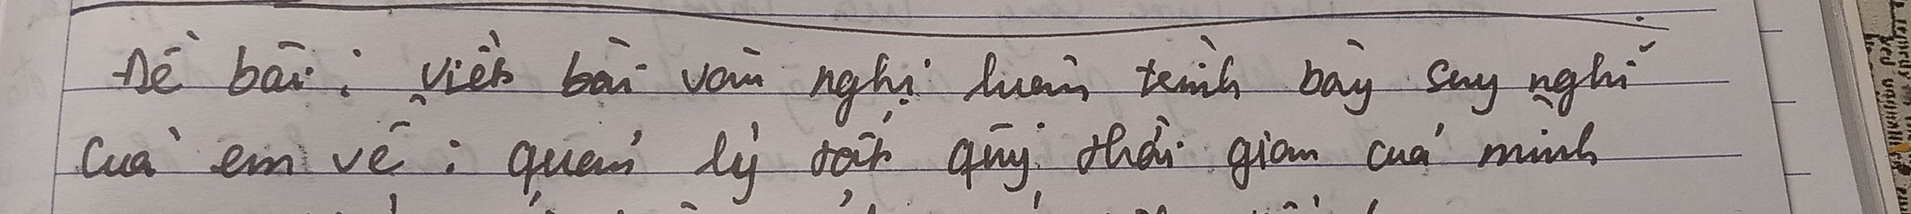 Đề bài : Viết bài văn nghị luận trình bày suy nghĩ
của em về : quản lý tốt quỹ thời gian của mình